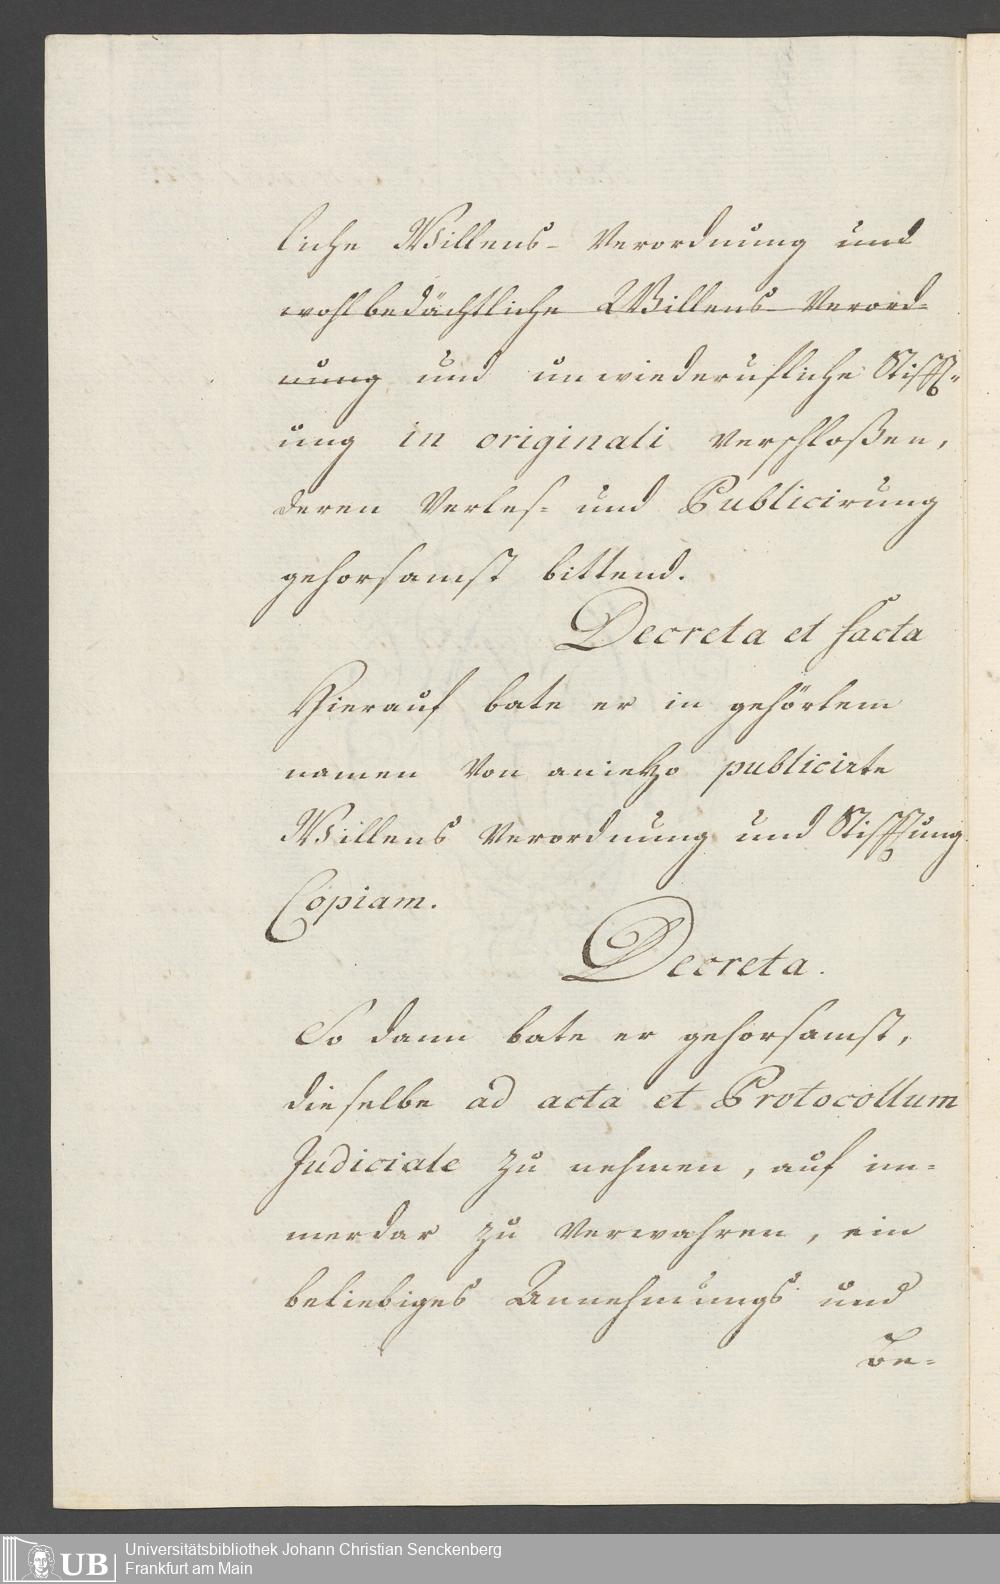 liche Willens- Verordnung und
wohlbedächtliche Willens- Verord-
nung und unwiederufliche Stifft-
ung in originali verschloßen,
deren Verles- und Publicirung
gehorsamst bittend.
Decreta et facta
Hierauf bate er in gehörtem
namen von anietzo publicirte
Willens Verordnung und Stifftung
Copiam.
Decreta.
So dann bate er gehorsamst,
dieselbe ad acta et Protocollum
Judiciale zu nehmen, auf im-
merdar zu verwahren, ein
beliebiges Annehmungs und
Be-
UB
Universitätsbibliothek Johann Christian Senckenberg
Frankfurt am Main